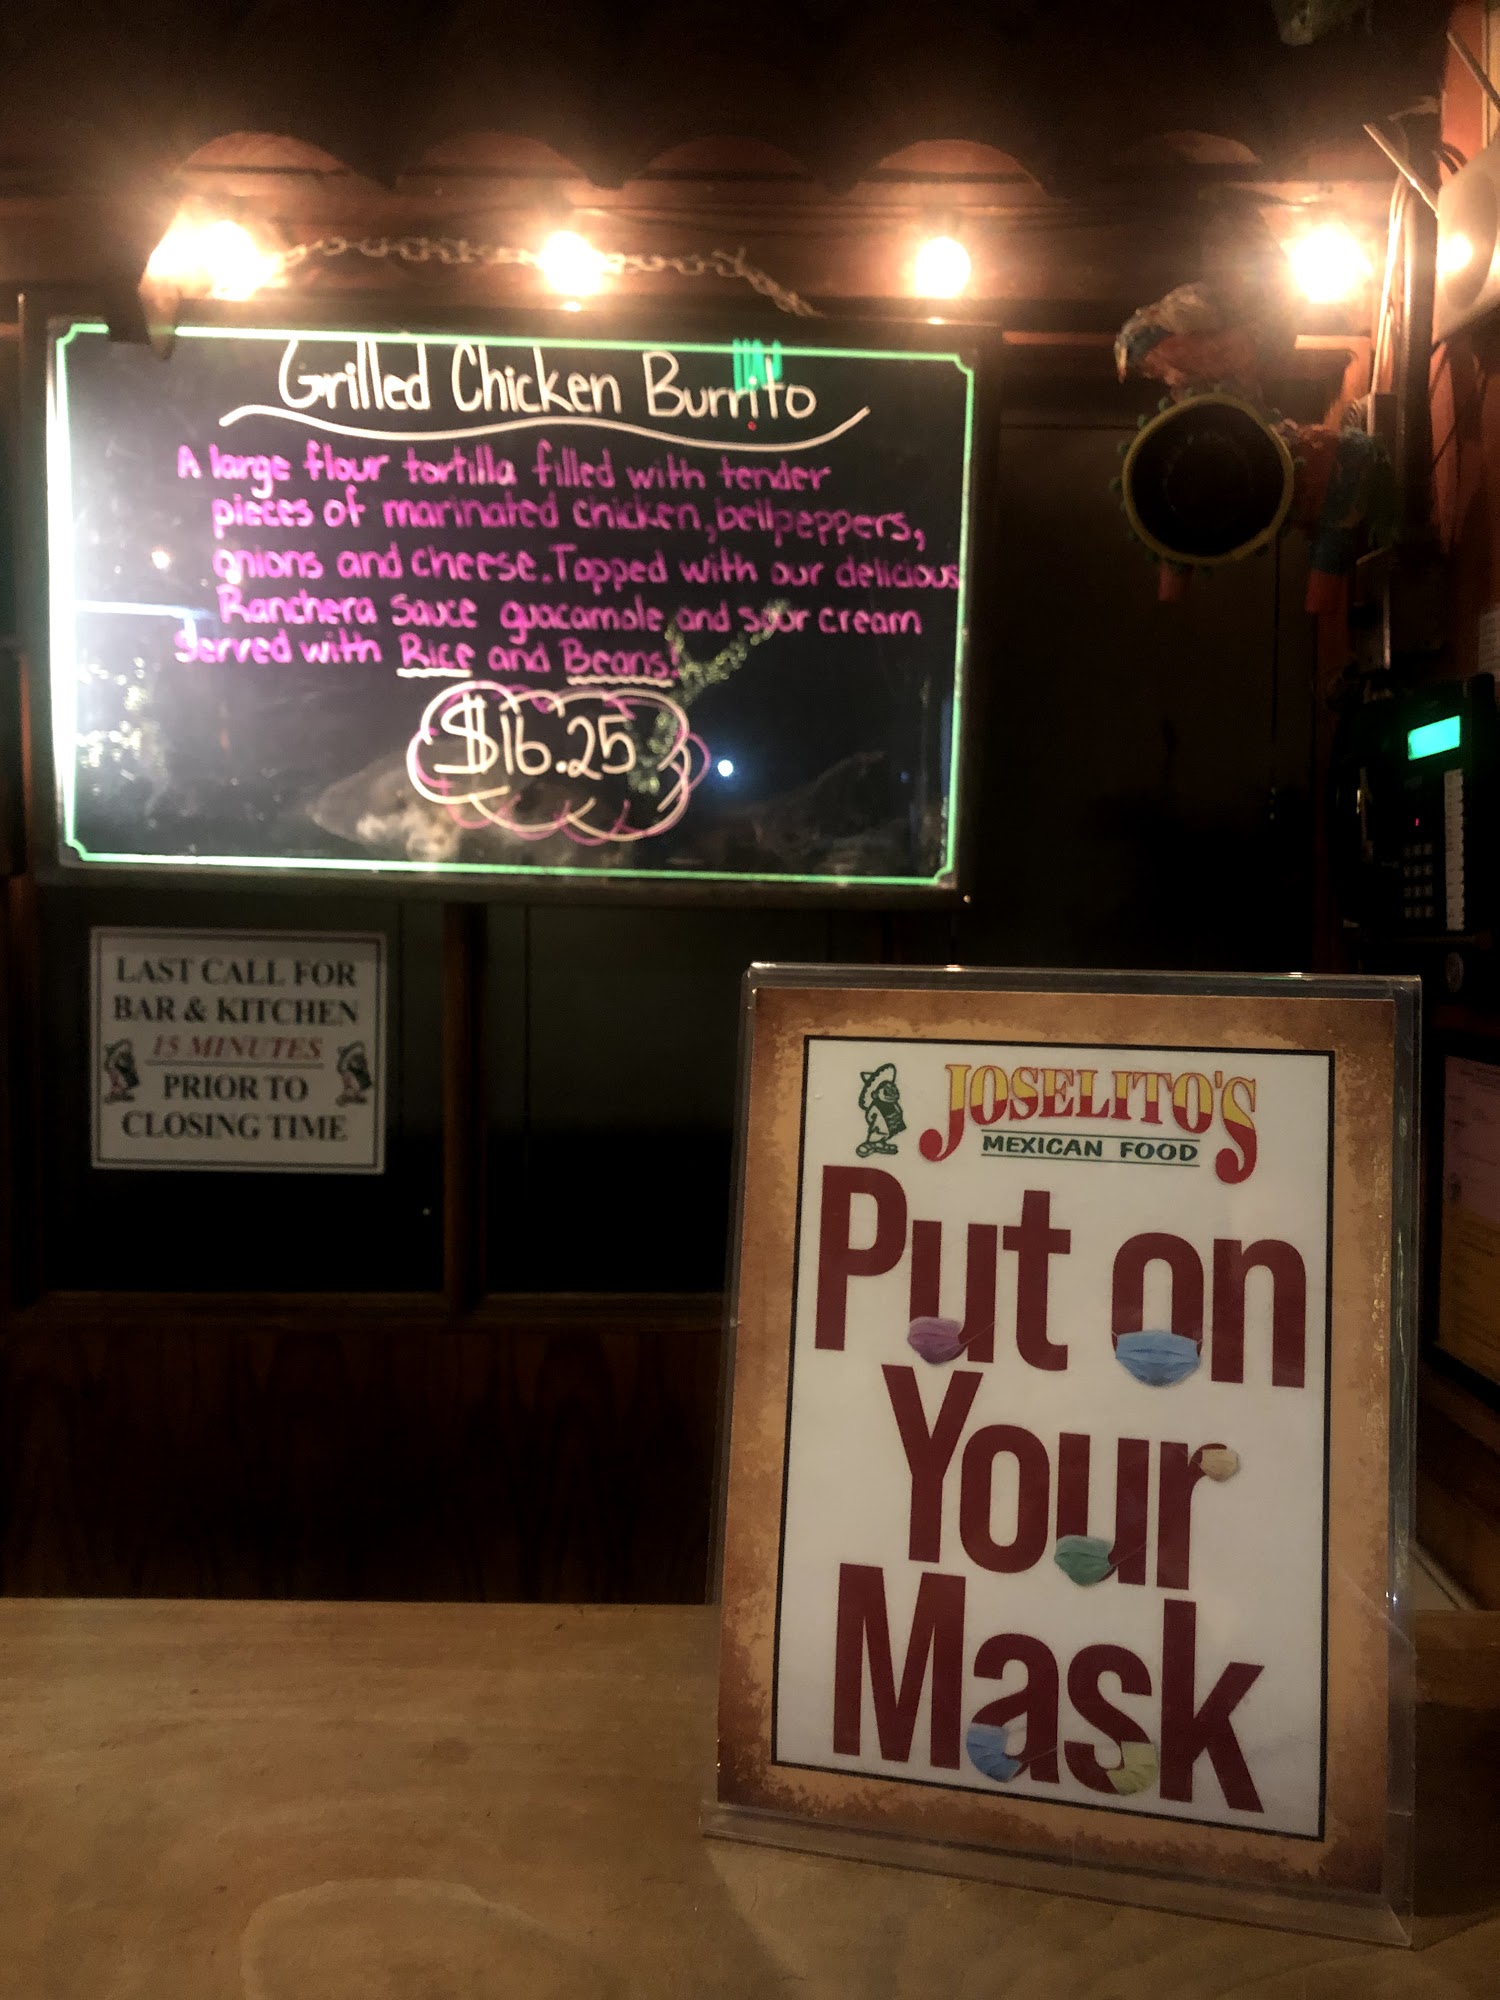 Grilled Chicken Burrito
A large flour tortilla filled with tender
pieces of marinated chicken, bellpeppers,
onions and cheese. Topped with our delicious
Ranchera Sauce guacamole and sour cream
Served with Rice and Beans!
$16.25
LAST CALL FOR
BAR & KITCHEN
15 MINUTES
PRIOR TO
CLOSING TIME
JOSELITO'S
MEXICAN FOOD
Put on
Your
Mask